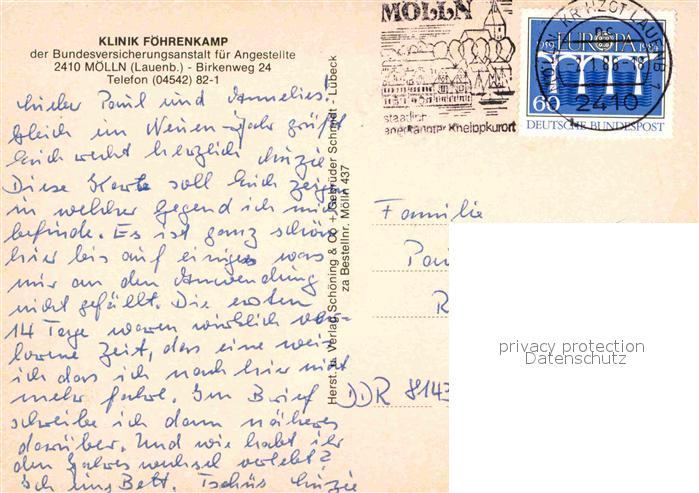 KLINIK FÖHRENKAMP
der Bundesversicherungsanstalt für Angestellte
2410 MÖLLN (Lauenb.) - Birkenweg 24
Telefon (04542) 82-1
Lieber Paul und Annelies!
Gleich im Neuen-Jahr grüßt
Euch recht herzlich Einzie
Diese Karte soll Euch zeigen
in welcher Gegend ich mich
befinde. Es ist ganz schön
hier bis auf einiges was
mir an den Anwendung
nicht gefällt. Die ersten
14 Tage waren wirklich ver-
lorene Zeit, das eine weis
ich das ich nach hier nicht
mehr fahre. Im Brief
schreibe ich dann näheres
darüber. Und wie habt ihr
den Jahreswechsel verlebt?
Ich ins Bett. Tschüs Einzie
Herst. u. Verlag Schöning & Co + Gebrüder Schmidt - Lübeck
za Bestellnr. Mölln 437
MÖLLN
staatlich
anerkannter Kneippkurort
EUROPA
60
DEUTSCHE BUNDESPOST
2410
Familie
Pau
R
DDR 8143
privacy protection
Datenschutz